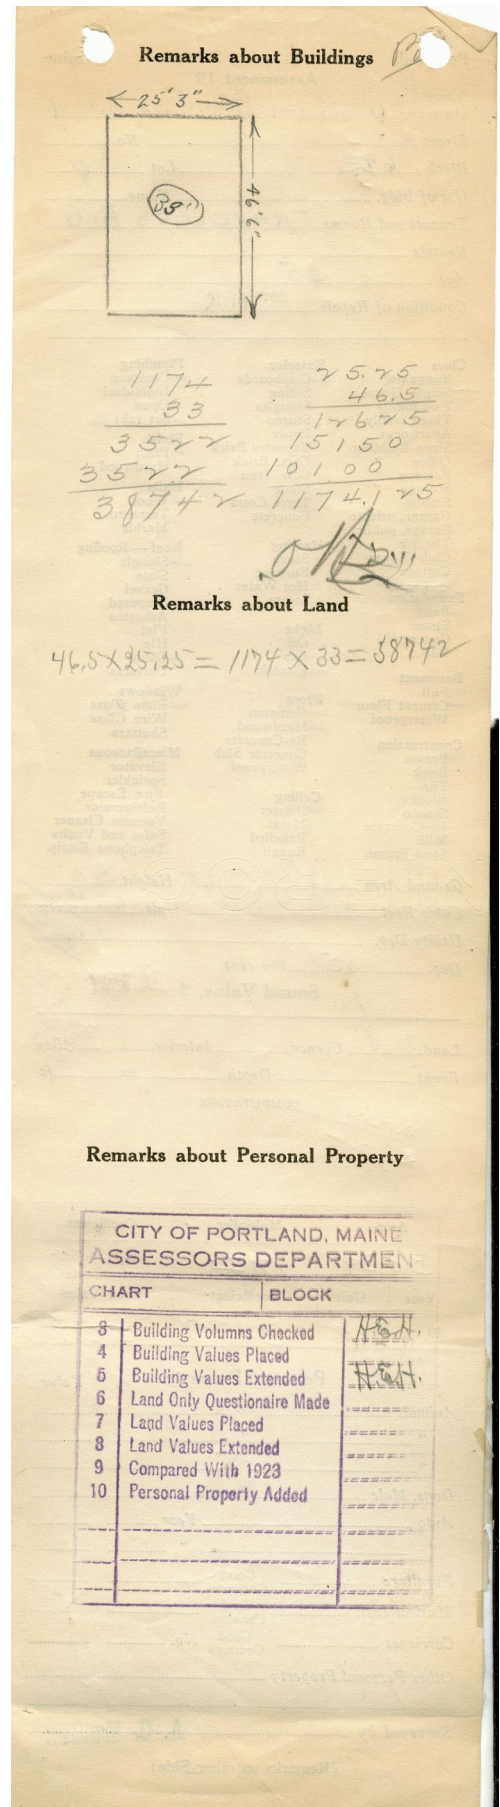 Remarks about Buildings
25'3"
33'
46'6"
1174
33
3522
3522
38742
25.25
46.5
12625
15150
10100
1174.125
OK
Remarks about Land
46.5X25.25 = 1174 X 33 = 38742
Remarks about Personal Property
CITY OF PORTLAND, MAINE
ASSESSORS DEPARTMEN
CHART BLOCK
3 Building Volumns Checked H.E.H.
4 Building Values Placed
5 Building Values Extended H.E.H.
6 Land Only Questionaire Made
7 Land Values Placed
8 Land Values Extended
9 Compared With 1923
10 Personal Property Added